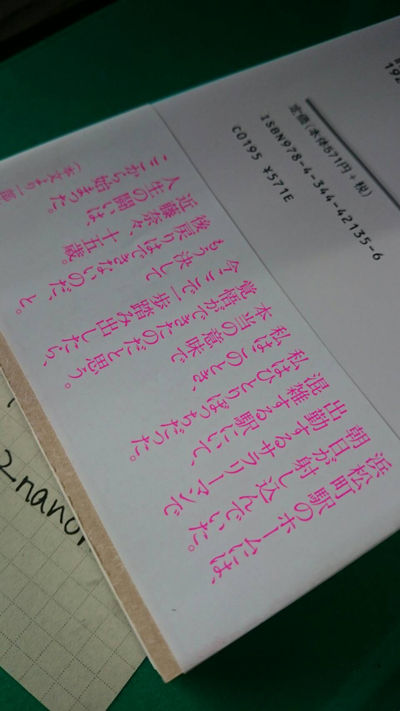 浜松町駅のホームには、
朝日が射し込んでいた。
出勤するサラリーマンで
混雑する駅にいて、
私はひとりぼっちだった。
私はこのとき、
本当の意味で
覚悟ができたのだと思う。
今ここで一歩踏み出したら、
もう決して
後戻りはできないのだ、と。
近藤奈々、十五歳。
人生の闘いは、
ここから始まった。
(本文より一部
192
定価(本体571円+税)
ISBN978-4-344-42135-6
C0195 ¥571E